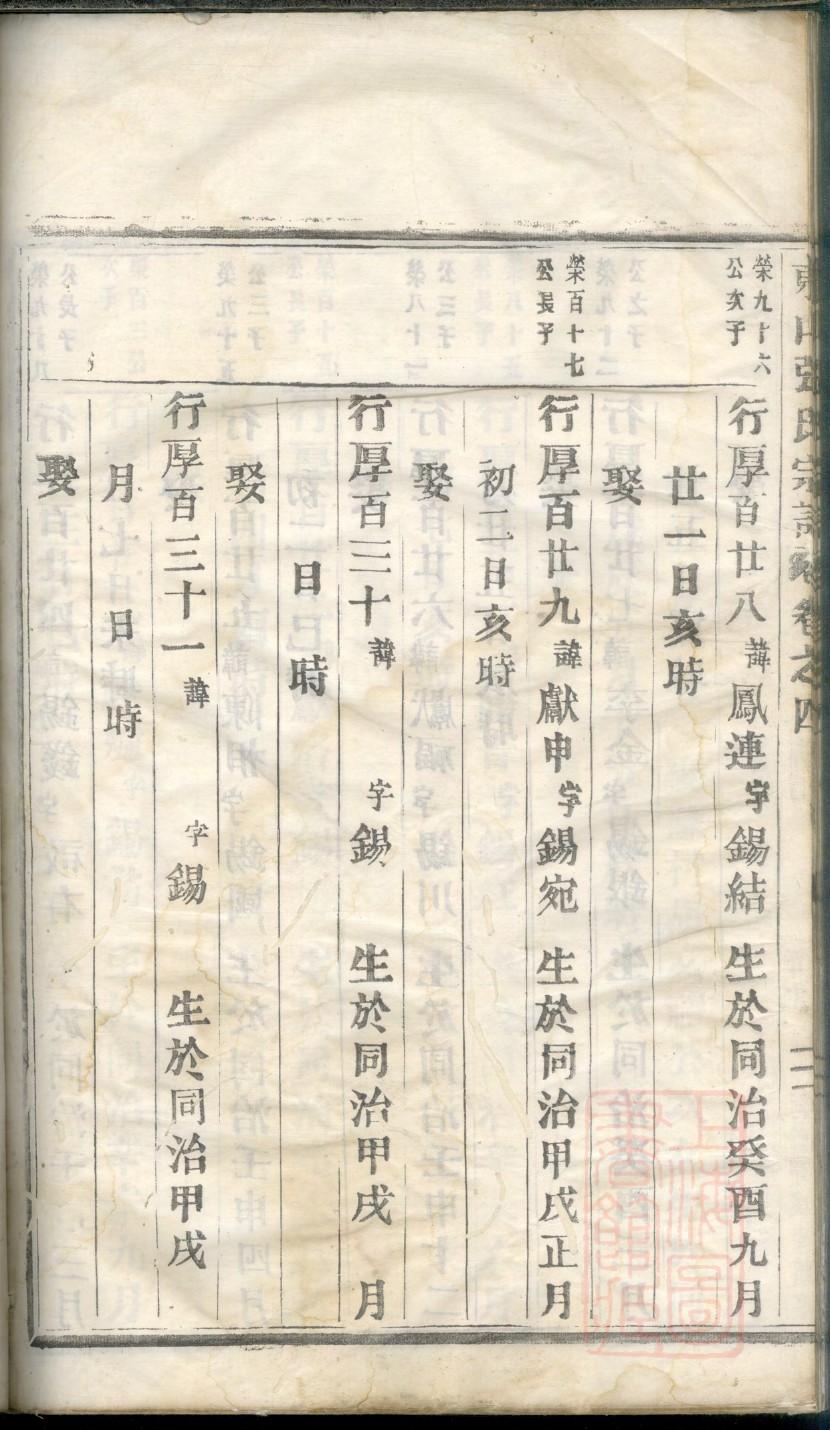 張氏宗譜 卷之四
榮九十六
公次子
行厚百廿八 諱鳳連 字錫結 生於同治癸酉九月
廿一日亥時
娶
榮百十七
公長子
行厚百廿九 諱獻申 字錫宛 生於同治甲戌正月
初二日亥時
娶
行厚百三十 諱 字錫 生於同治甲戌 月
日 時
娶
行厚百三十一 諱 字錫 生於同治甲戌
月 日 時
娶